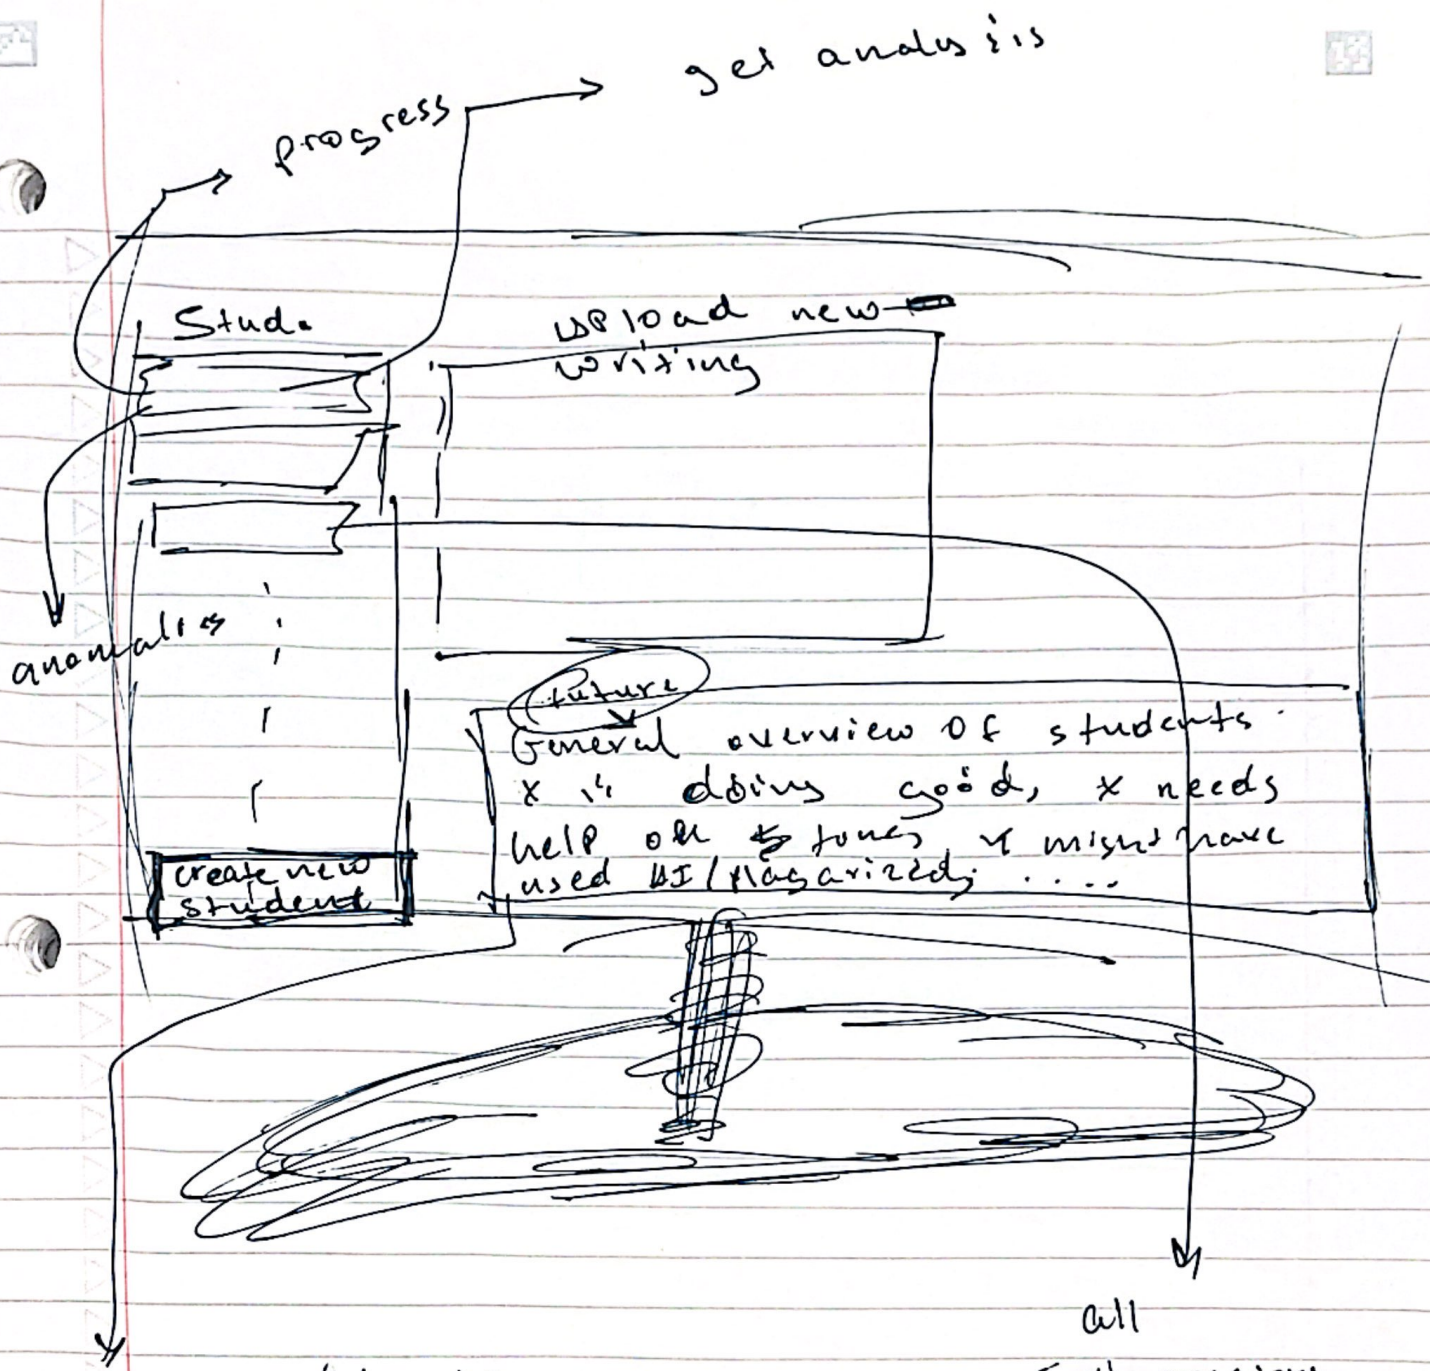 get analysis
progress
Stud.
upload new
writing
anomalies
future
General overview of students.
X is doing good, X needs
help on tone, Y might have
used AI/Plagarized; ....
create new
student
all